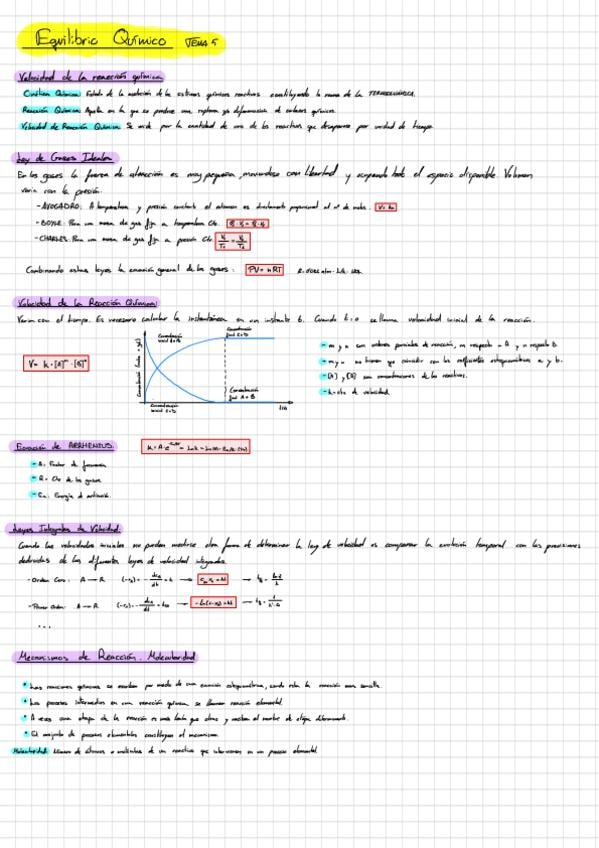 Equilibrio Químico TEMA 5
Velocidad de la reacción química
Cinética Química: Estudio de la evolución de los sistemas químicos reactivos constituyendo la rama de la TERMODINÁMICA.
Reacción Química: Aquella en la que se produce una ruptura y/o formación de enlaces químicos.
Velocidad de Reacción Química: Se mide por la cantidad de uno de los reactivos que desaparece por unidad de tiempo.
Ley de Gases Ideales
En los gases la fuerza de atracción es muy pequeña, moviéndose con libertad y ocupando todo el espacio disponible. Volumen
varía con la presión.
- AVOGADRO: A temperatura y presión constante el volumen es directamente proporcional al nº de moles.
- BOYLE: Para una masa de gas fija a temperatura cte.
- CHARLES: Para una masa de gas fija a presión cte.
Combinando estas leyes la ecuación general de los gases: PV = nRT
Velocidad de la Reacción Química:
Varía con el tiempo. Es necesario calcular la instantánea en un instante t. Cuando t=0 se llama velocidad inicial de la reacción.
- m y n son órdenes parciales de reacción, m respecto A y n respecto B.
- m y n no tienen que coincidir con los coeficientes estequiométricos a y b.
- [A] y [B] son concentraciones de los reactivos.
- k = cte de velocidad
V = k·[A]ᵐ·[B]ⁿ
Concentración
Concentración
Concentración
Ecuación de ARRHENIUS:
- A = Factor de frecuencia
- R = Cte de los gases
- Ea = Energía de activación.
Leyes Integrales de Velocidad:
Cuando las velocidades iniciales no pueden medirse otra forma de determinar la ley de velocidad es comparar la evolución temporal con las predicciones
deducidas de las diferentes leyes de velocidad integradas
- Orden Cero: A → R
- Primer Orden: A → R
...
Mecanismos de Reacción. Molecularidad
• Las reacciones químicas se escriben por medio de una ecuación estequiométrica, siendo esta la reacción más sencilla.
• Los procesos intermedios en una reacción química se llaman reacción elemental.
• A veces una etapa de la reacción es más lenta que otras y reciben el nombre de etapa determinante.
• El conjunto de procesos elementales constituyen el mecanismo.
Molecularidad: Número de átomos o moléculas de un reactivo que intervienen en un proceso elemental.